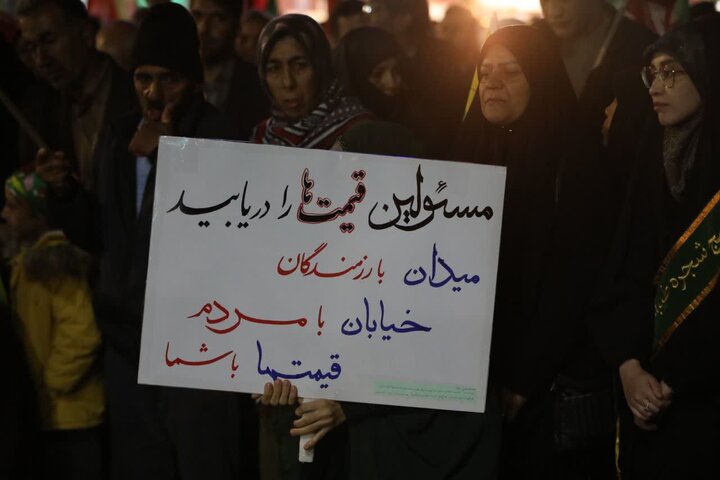 مسئولین قیمت‌ها را دریابید
میدان با رزمندگان
خیابان با مردم
قیمتها با شما
شجره